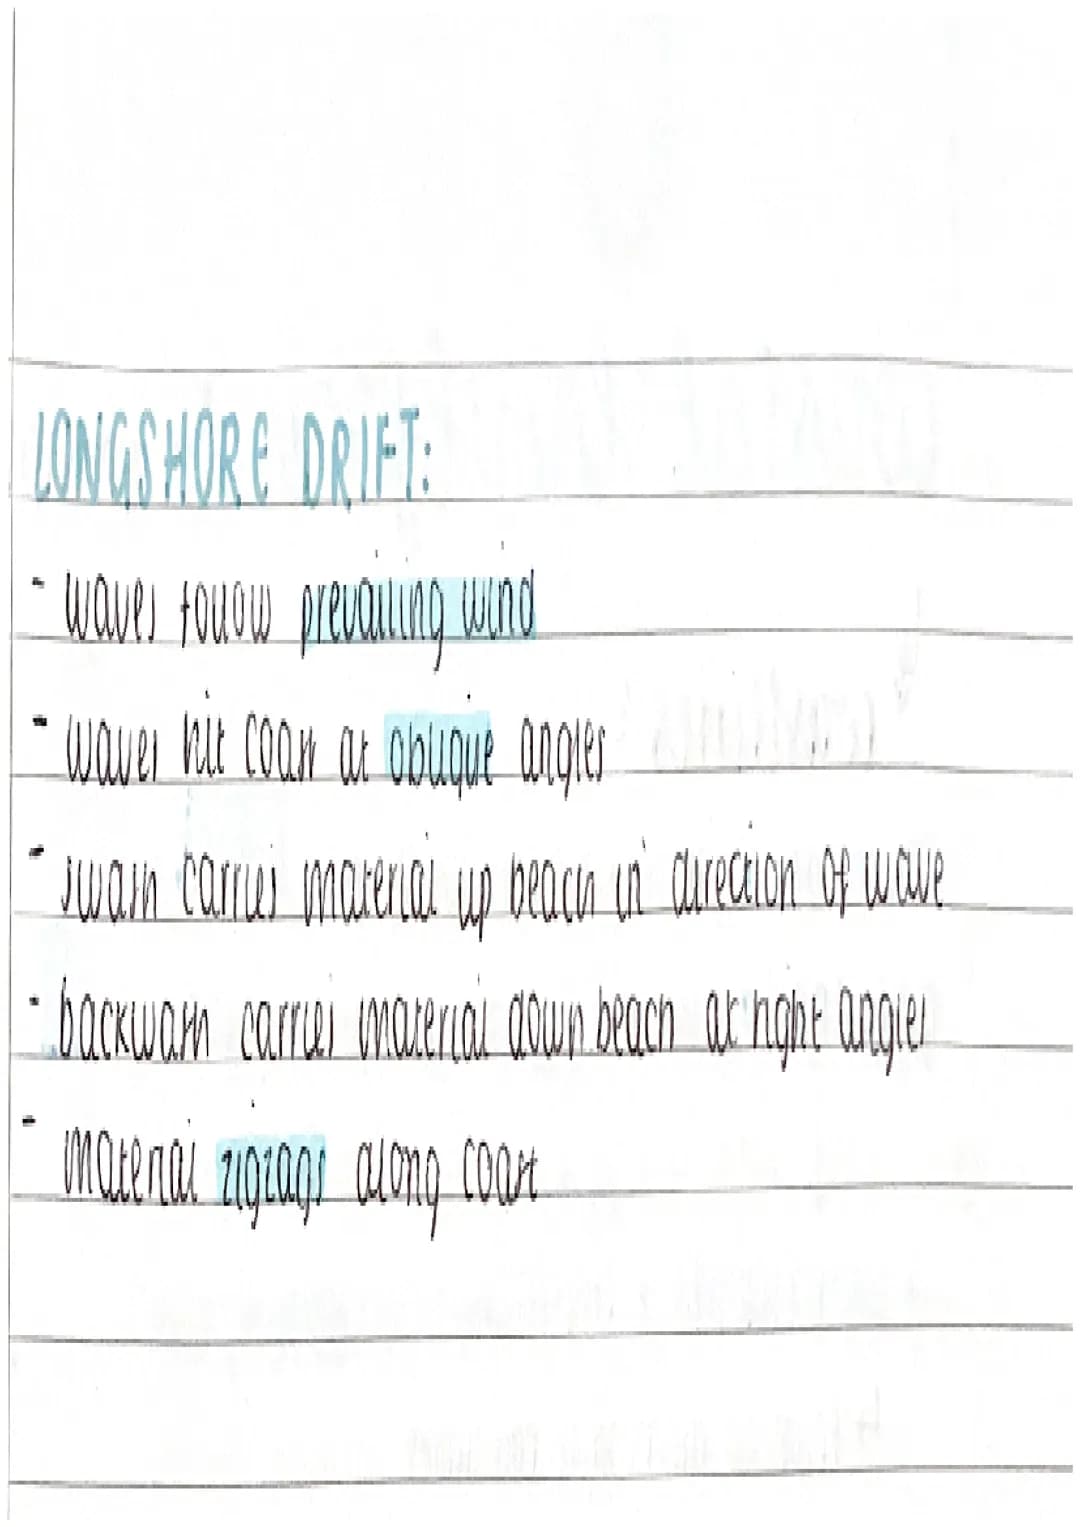 LONGSHORE DRIFT:
- waves follow prevailing wind
- waves hit coast at oblique angles
- swash carries material up beach in direction of wave
- backwash carries material down beach at right angles
- material zigzags along coast